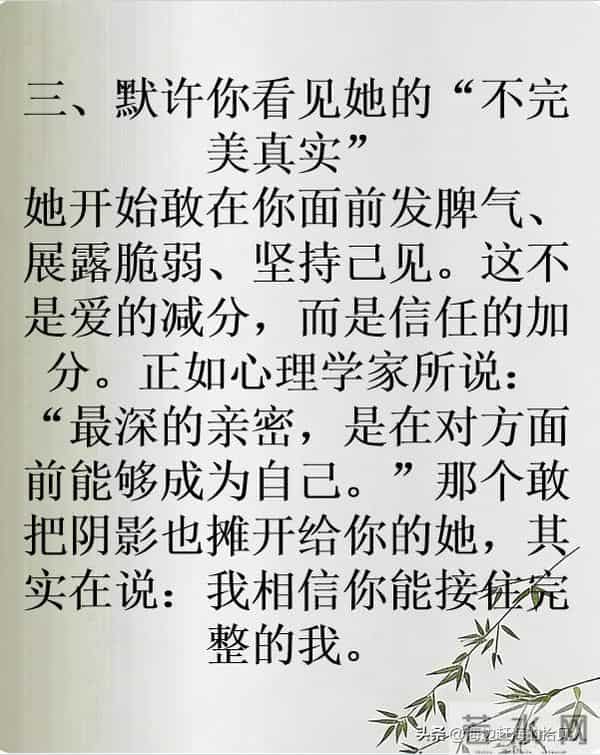 三、默许你看见她的“不完
美真实”
她开始敢在你面前发脾气、
展露脆弱、坚持己见。这不
是爱的减分，而是信任的加
分。正如心理学家所说：
“最深的亲密，是在对方面
前能够成为自己。”那个敢
把阴影也摊开给你的她，其
实在说：我相信你能接住完
整的我。
头条@
若水网